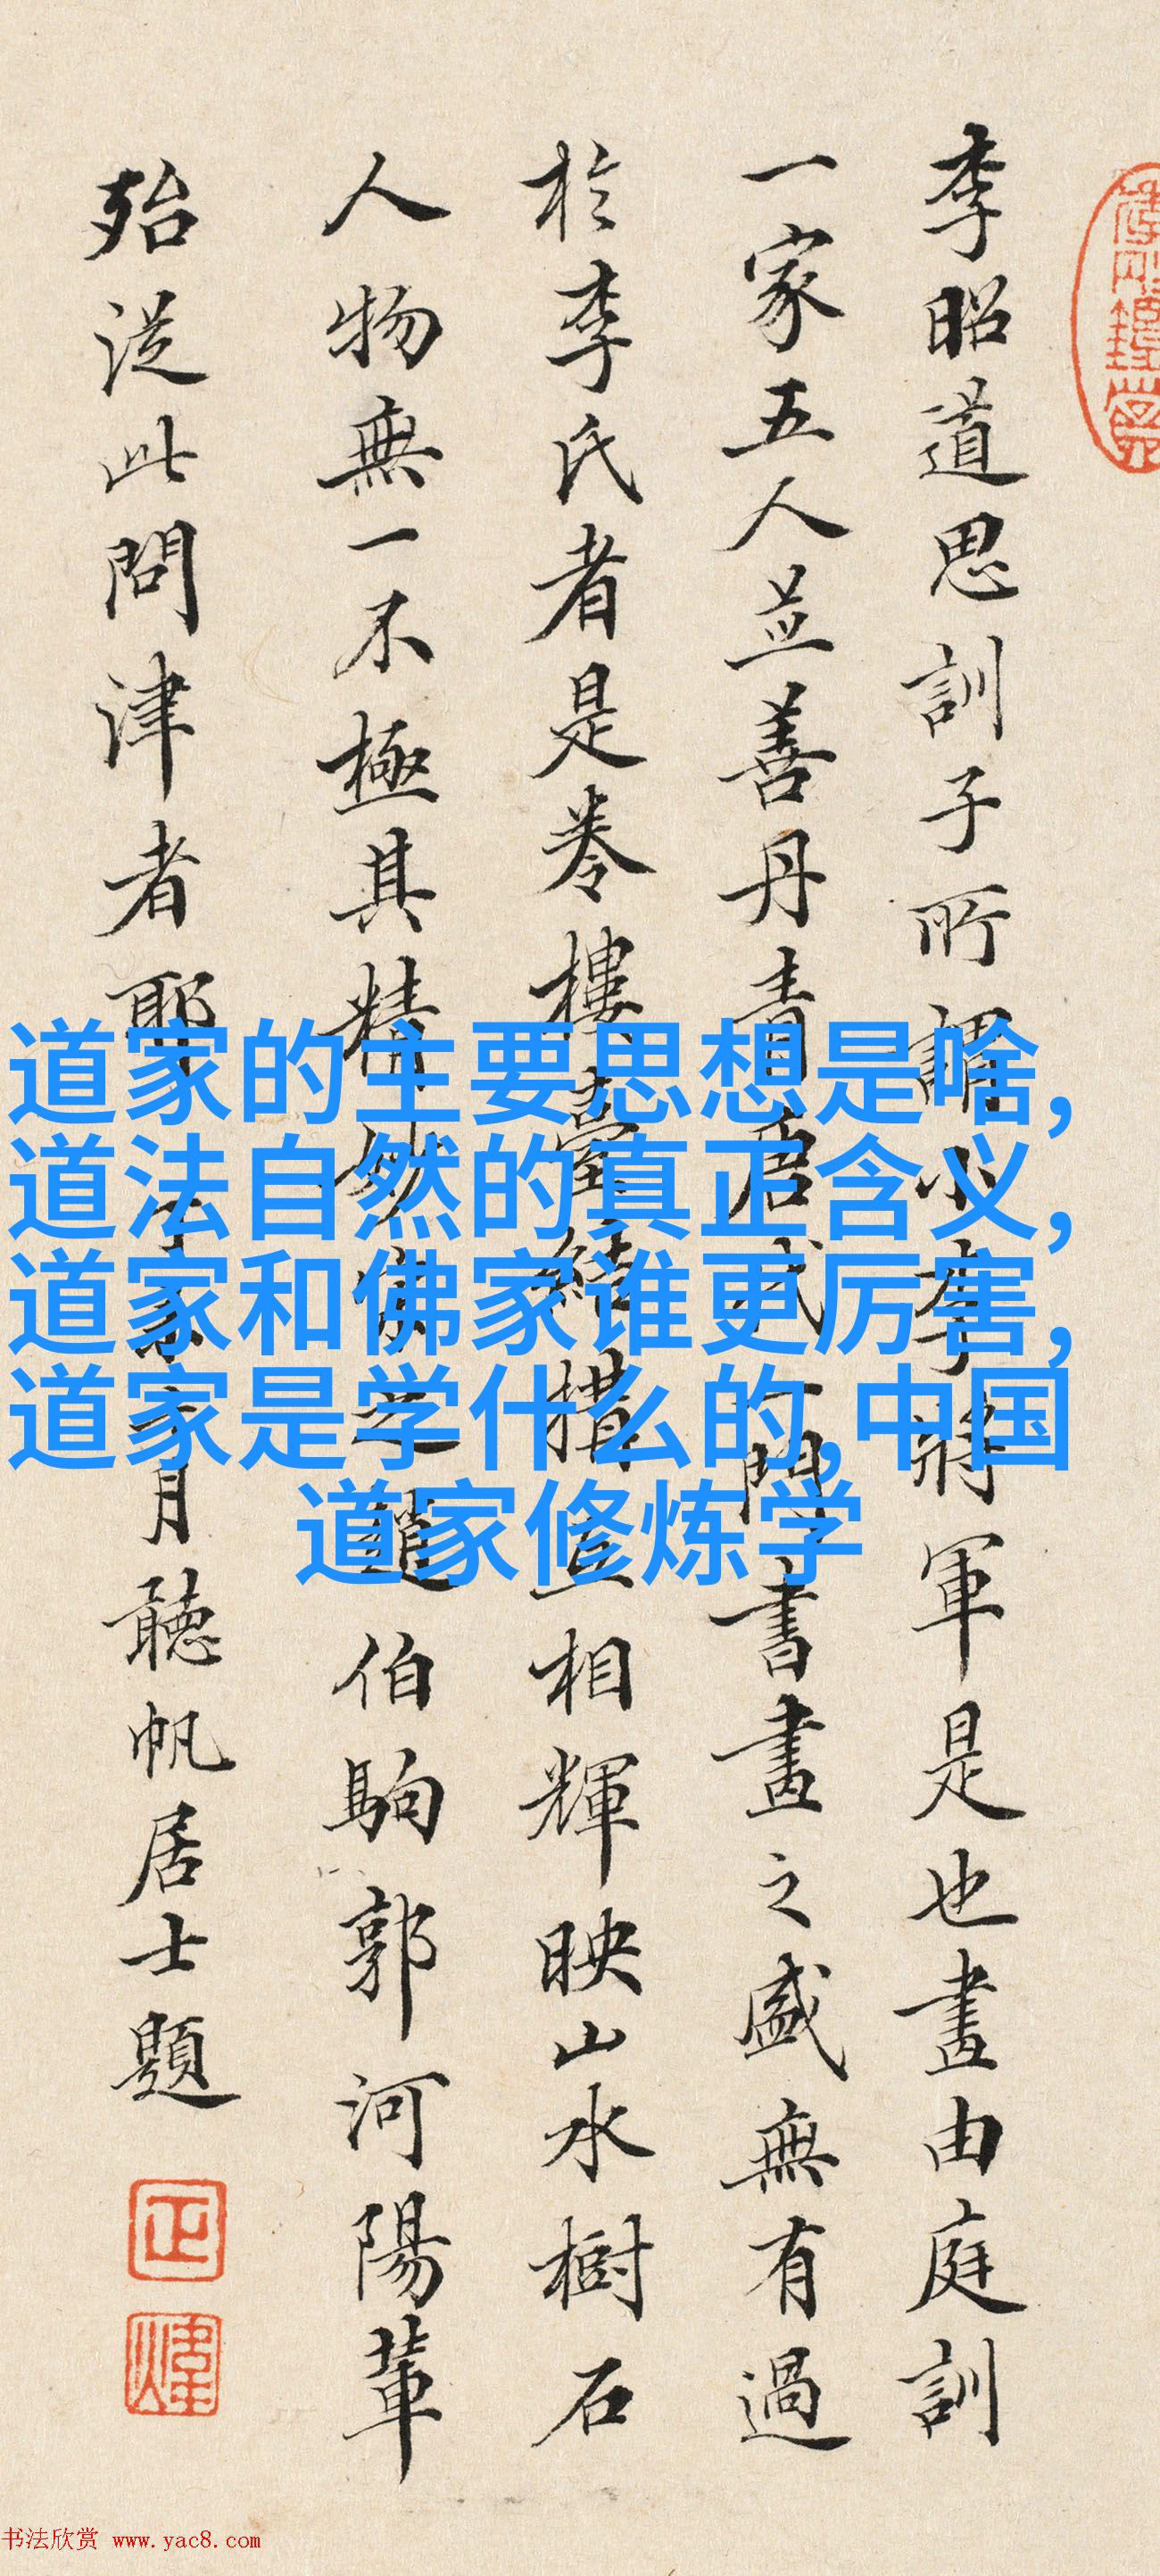 李昭道思訓子所謂小李將軍是也畫由庭訓
一家五人並善丹青唐一門書畫之盛無有過
於李氏者是卷樓臺結構並相輝映山水樹石
人物無一不極其精妙之趙伯駒郭河陽輩
殆從此問津者耶月聽帆居士題
正
煒
道家的主要思想是啥,
道法自然的真正含义,
道家和佛家谁更厉害,
道家是学什么的,中国
道家修炼学
书法欣赏 www.yac8.com